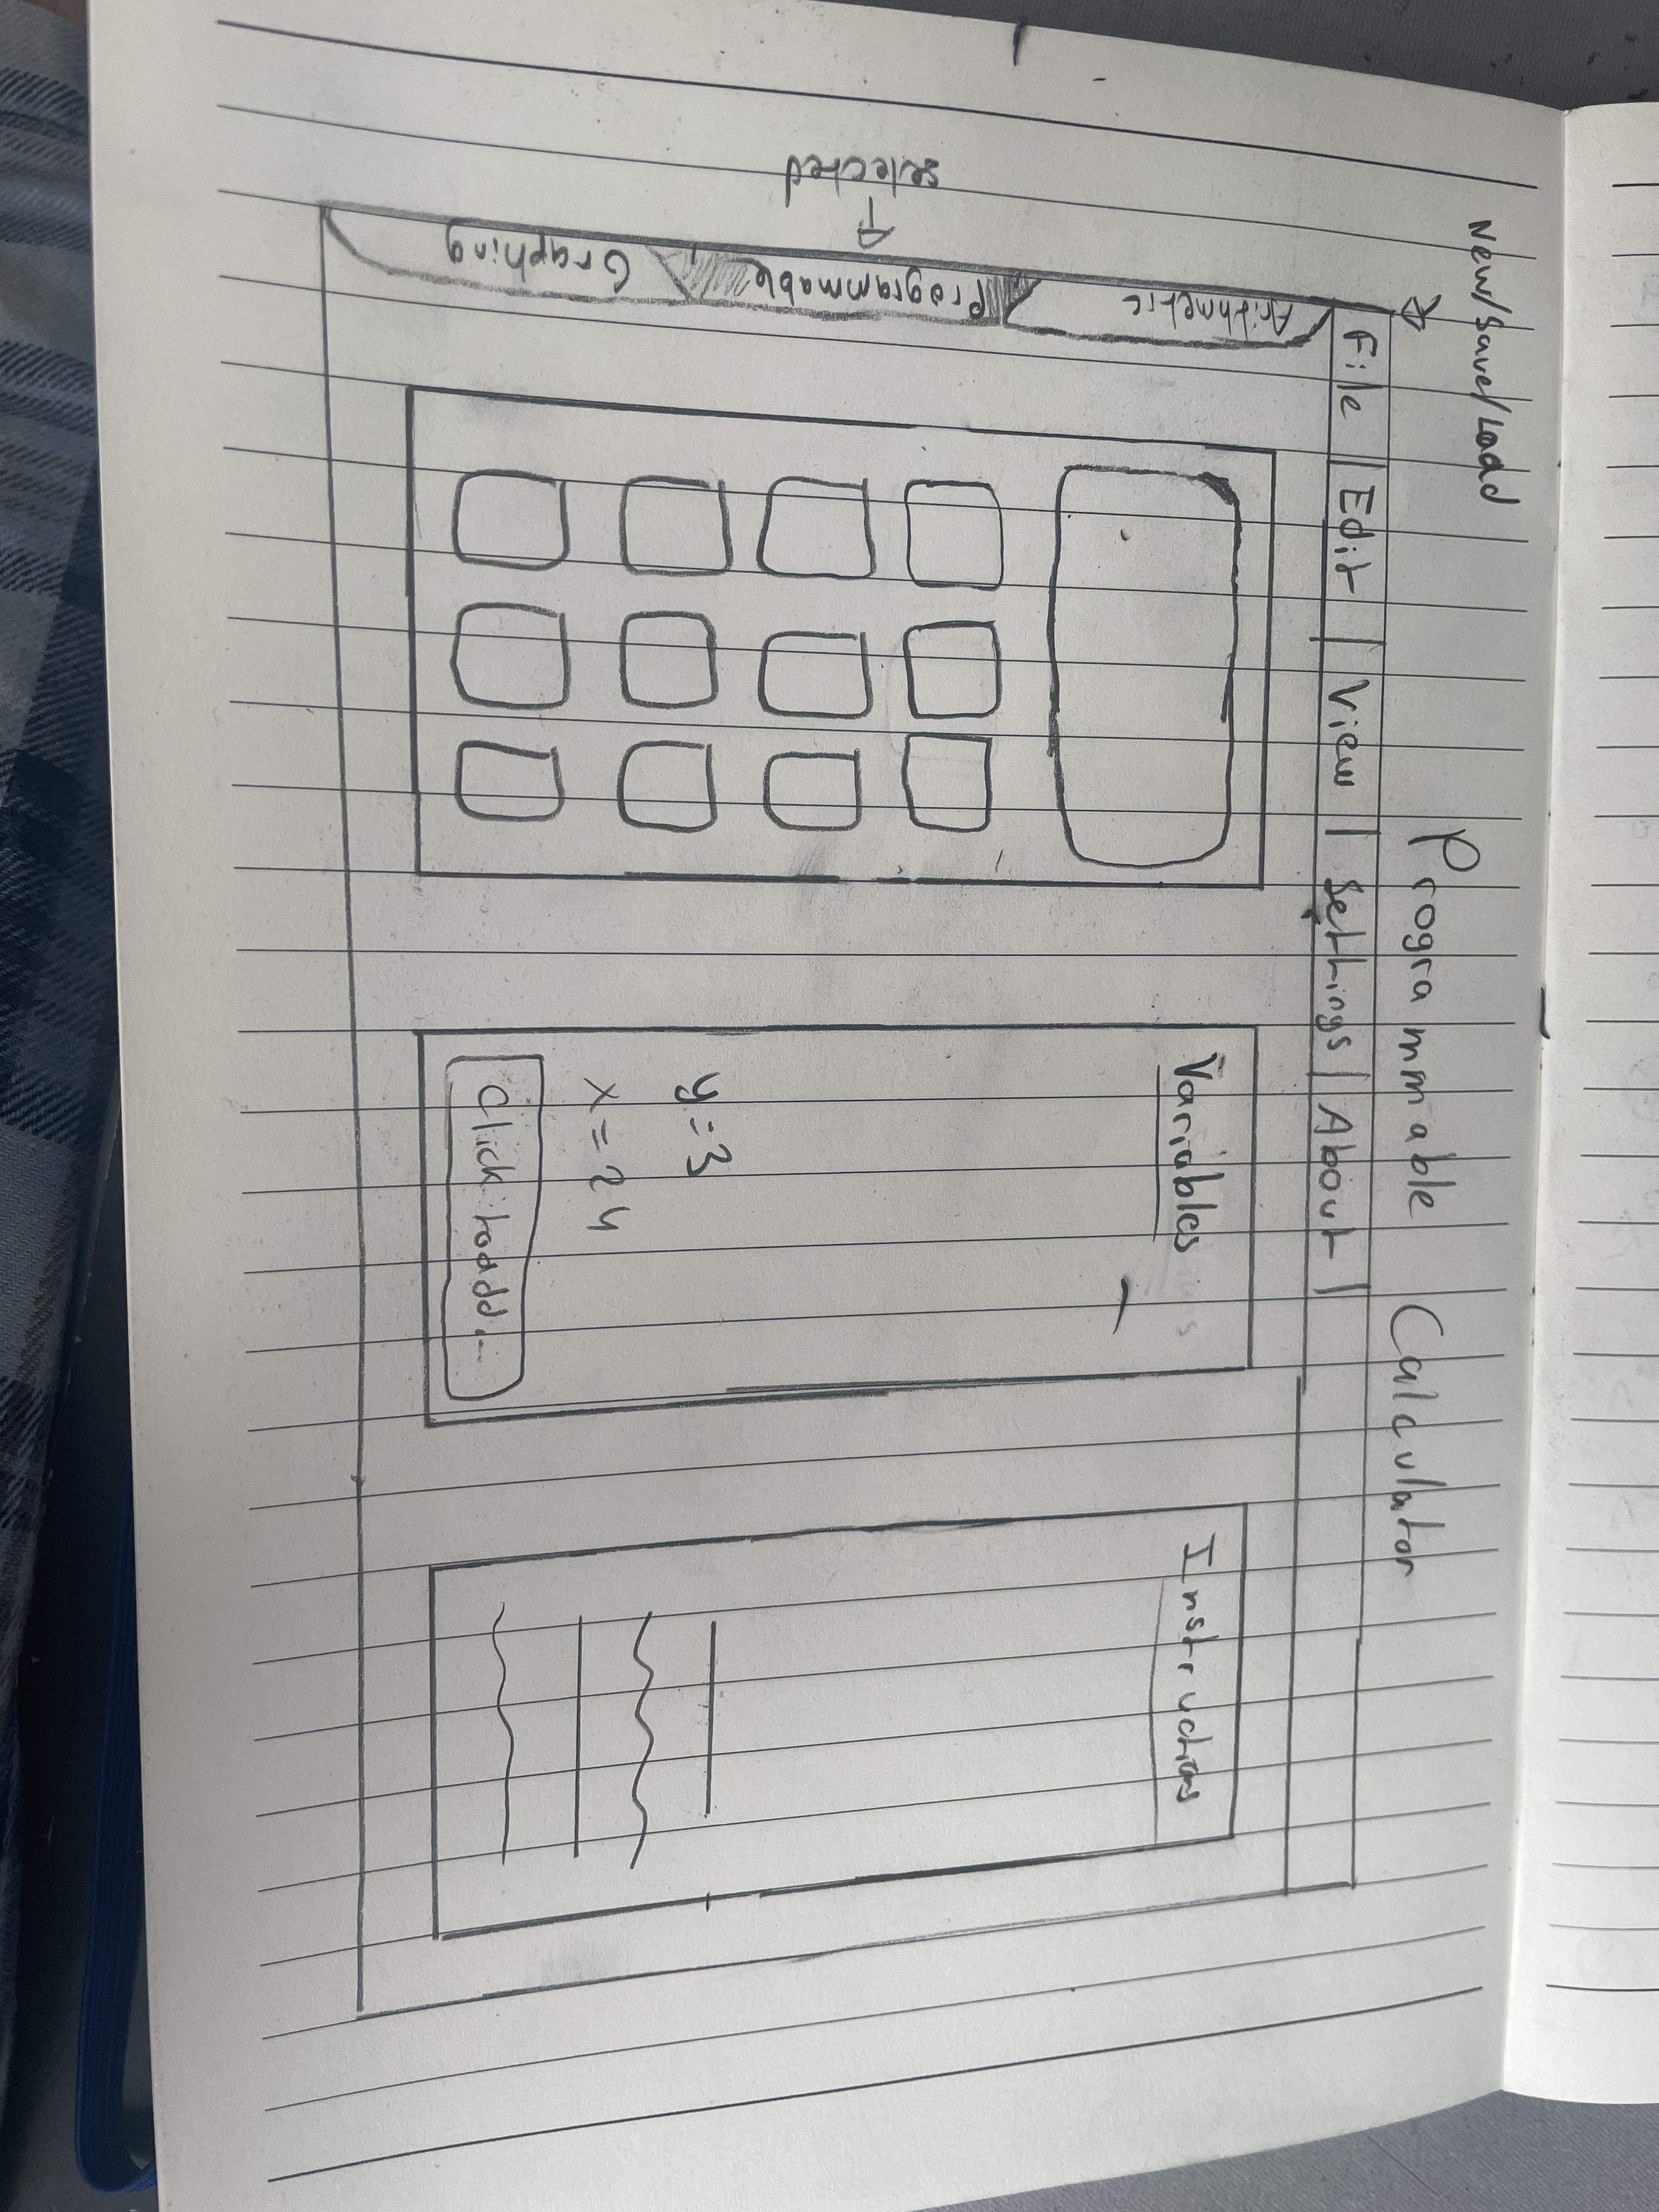 New/Save/Load
Programmable Calculator
File | Edit | View | Settings | About |
Arithmetic
Programmable
Graphing
selected
Variables
y=3
x=24
Click to add...
Instructions